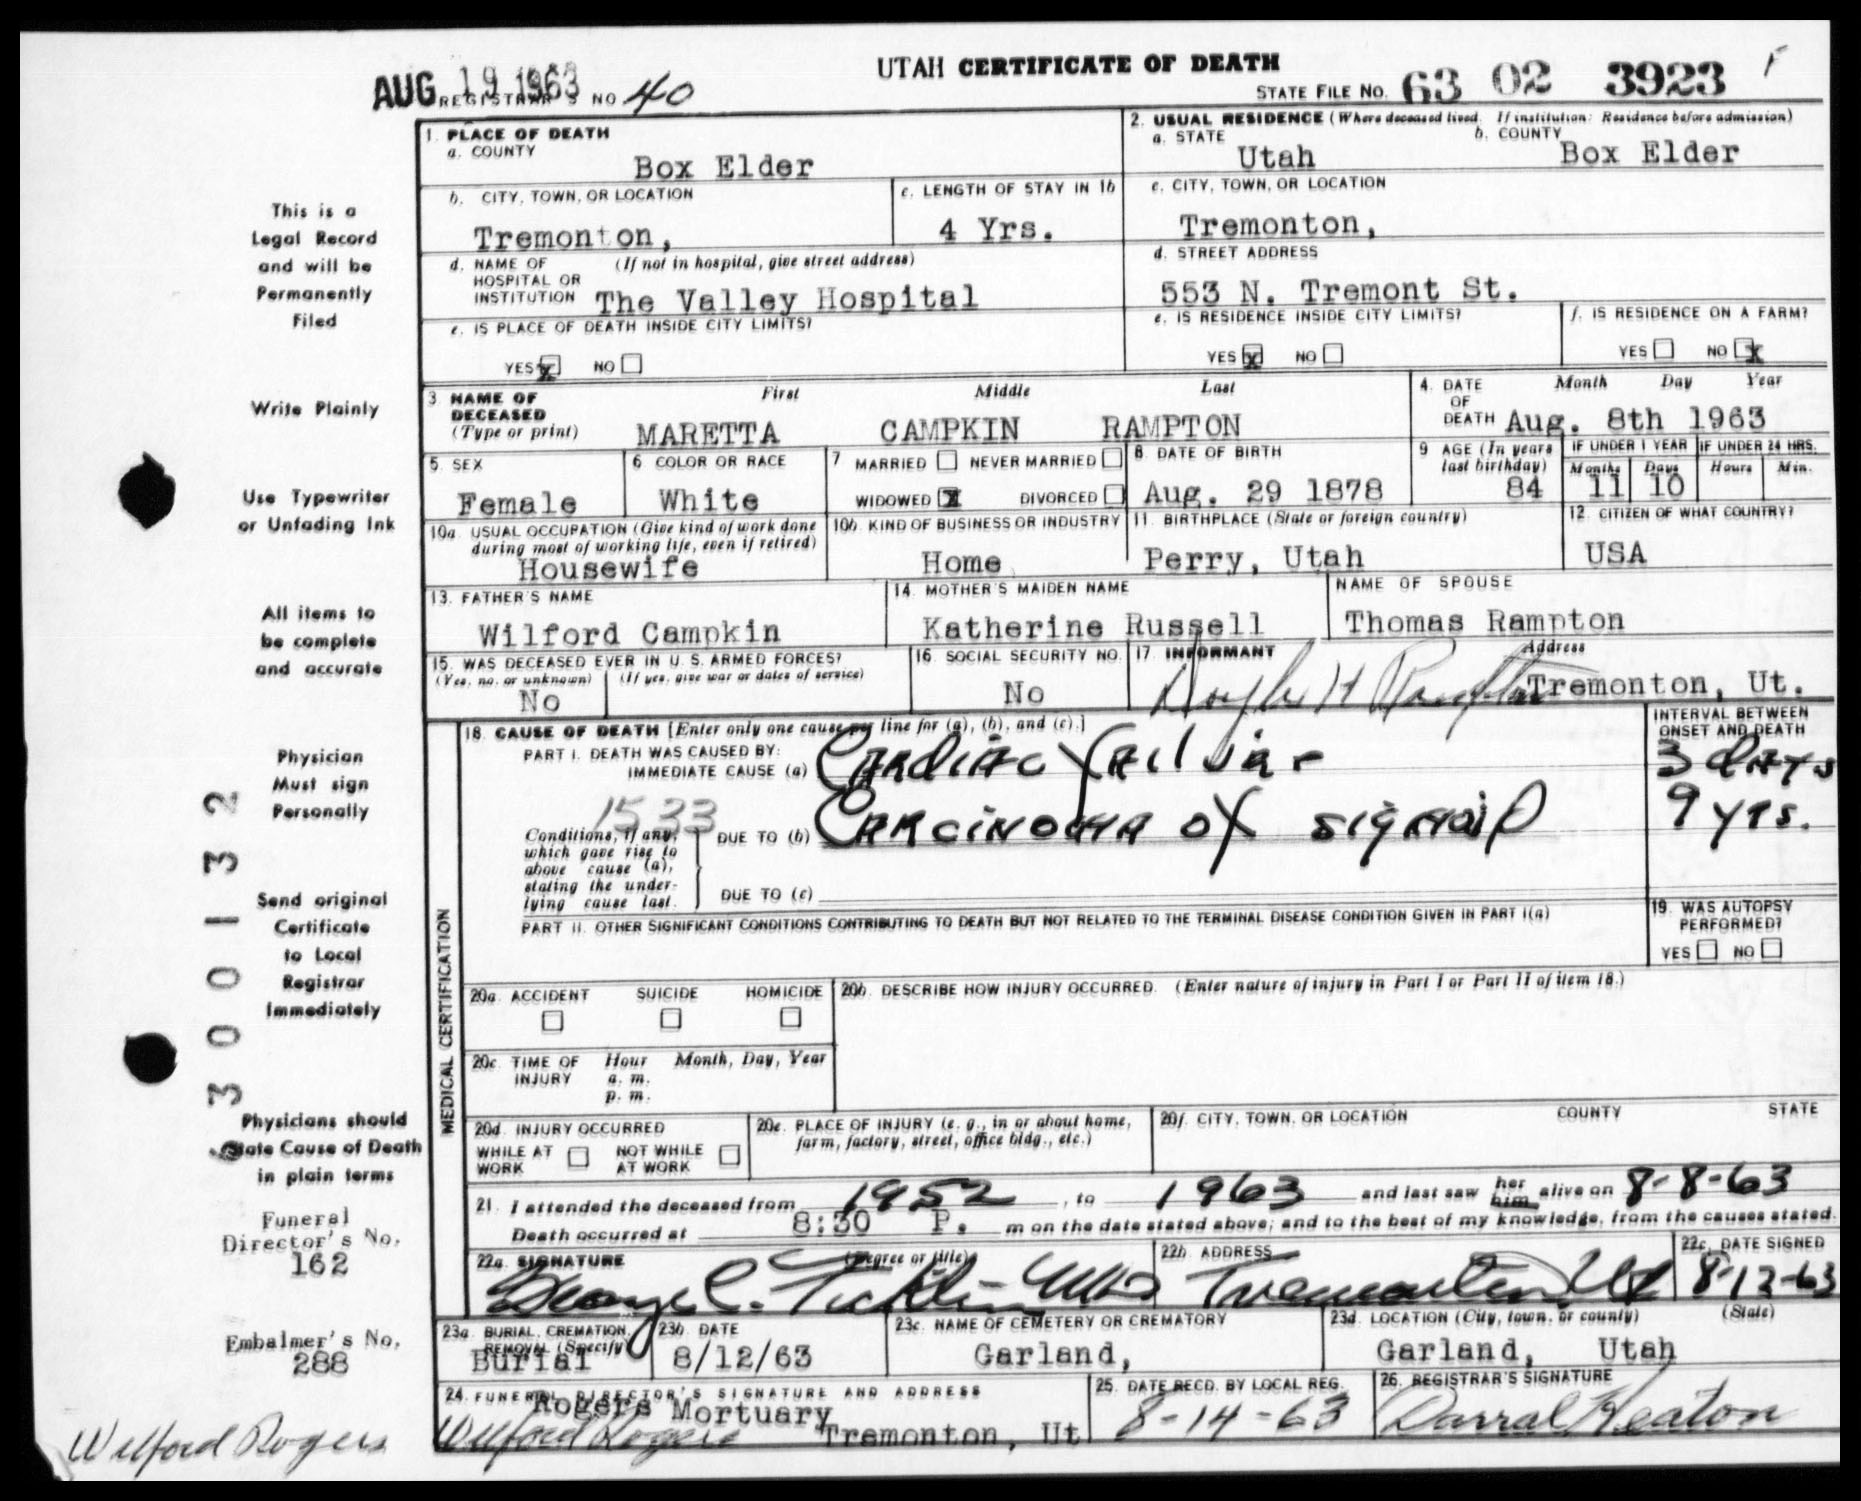 UTAH CERTIFICATE OF DEATH
AUG 19 1963
REGISTRAR'S NO 40
STATE FILE NO. 63 02 3923 F
1. PLACE OF DEATH
a. COUNTY
Box Elder
2. USUAL RESIDENCE (Where deceased lived. If institution: Residence before admission)
a. STATE
Utah
b. COUNTY
Box Elder
b. CITY, TOWN, OR LOCATION
Tremonton,
c. LENGTH OF STAY IN 1b
4 Yrs.
c. CITY, TOWN, OR LOCATION
Tremonton,
d. NAME OF HOSPITAL OR INSTITUTION
(If not in hospital, give street address)
The Valley Hospital
d. STREET ADDRESS
553 N. Tremont St.
e. IS PLACE OF DEATH INSIDE CITY LIMITS?
YES X NO
e. IS RESIDENCE INSIDE CITY LIMITS?
YES X NO
f. IS RESIDENCE ON A FARM?
YES NO X
3. NAME OF DECEASED
(Type or print)
First Middle Last
MARETTA CAMPKIN RAMPTON
4. DATE OF DEATH
Month Day Year
Aug. 8th 1963
5. SEX
Female
6 COLOR OR RACE
White
7 MARRIED NEVER MARRIED
WIDOWED X DIVORCED
8. DATE OF BIRTH
Aug. 29 1878
9 AGE (In years last birthday)
84
IF UNDER 1 YEAR
Months Days
11 10
IF UNDER 24 HRS.
Hours Min.
10a. USUAL OCCUPATION (Give kind of work done during most of working life, even if retired)
Housewife
10b. KIND OF BUSINESS OR INDUSTRY
Home
11. BIRTHPLACE (State or foreign country)
Perry, Utah
12. CITIZEN OF WHAT COUNTRY?
USA
13. FATHER'S NAME
Wilford Campkin
14. MOTHER'S MAIDEN NAME
Katherine Russell
NAME OF SPOUSE
Thomas Rampton
15. WAS DECEASED EVER IN U. S. ARMED FORCES?
(Yes, no, or unknown) (If yes, give war or dates of service)
No
16. SOCIAL SECURITY NO.
No
17. INFORMANT
Address
Doyle H Rampton Tremonton, Ut.
MEDICAL CERTIFICATION
18. CAUSE OF DEATH [Enter only one cause per line for (a), (b), and (c).]
INTERVAL BETWEEN ONSET AND DEATH
PART I. DEATH WAS CAUSED BY:
IMMEDIATE CAUSE (a) Cardiac Failure
3 days
1533
Conditions, if any, which gave rise to above cause (a), stating the underlying cause last.
DUE TO (b) Carcinoma of sigmoid
9 yrs.
DUE TO (c)
PART II. OTHER SIGNIFICANT CONDITIONS CONTRIBUTING TO DEATH BUT NOT RELATED TO THE TERMINAL DISEASE CONDITION GIVEN IN PART I(a)
19. WAS AUTOPSY PERFORMED?
YES NO
20a. ACCIDENT SUICIDE HOMICIDE
20b. DESCRIBE HOW INJURY OCCURRED. (Enter nature of injury in Part I or Part II of item 18.)
20c. TIME OF INJURY
Hour Month, Day, Year
a. m.
p. m.
20d. INJURY OCCURRED
WHILE AT WORK
NOT WHILE AT WORK
20e. PLACE OF INJURY (e. g., in or about home, farm, factory, street, office bldg., etc.)
20f. CITY, TOWN, OR LOCATION COUNTY STATE
21. I attended the deceased from 1952, to 1963 and last saw her him alive on 8-8-63
Death occurred at 8:30 P. m on the date stated above; and to the best of my knowledge, from the causes stated.
22a. SIGNATURE (Degree or title)
George C. Ficklin MD
22b. ADDRESS
Tremonton, Ut
22c. DATE SIGNED
8-12-63
23a. BURIAL, CREMATION, REMOVAL (Specify)
Burial
23b. DATE
8/12/63
23c. NAME OF CEMETERY OR CREMATORY
Garland,
23d. LOCATION (City, town, or county) (State)
Garland, Utah
24. FUNERAL DIRECTOR'S SIGNATURE AND ADDRESS
Rogers Mortuary
Wilford Rogers Tremonton, Ut
25. DATE RECD. BY LOCAL REG.
8-14-63
26. REGISTRAR'S SIGNATURE
Darral Heaton
This is a
Legal Record
and will be
Permanently
Filed
Write Plainly
Use Typewriter
or Unfading Ink
All items to
be complete
and accurate
Physician
Must sign
Personally
Send original
Certificate
to Local
Registrar
Immediately
Physicians should
State Cause of Death
in plain terms
Funeral
Director's No.
162
Embalmer's No.
288
Wilford Rogers
3 0 0 1 3 2